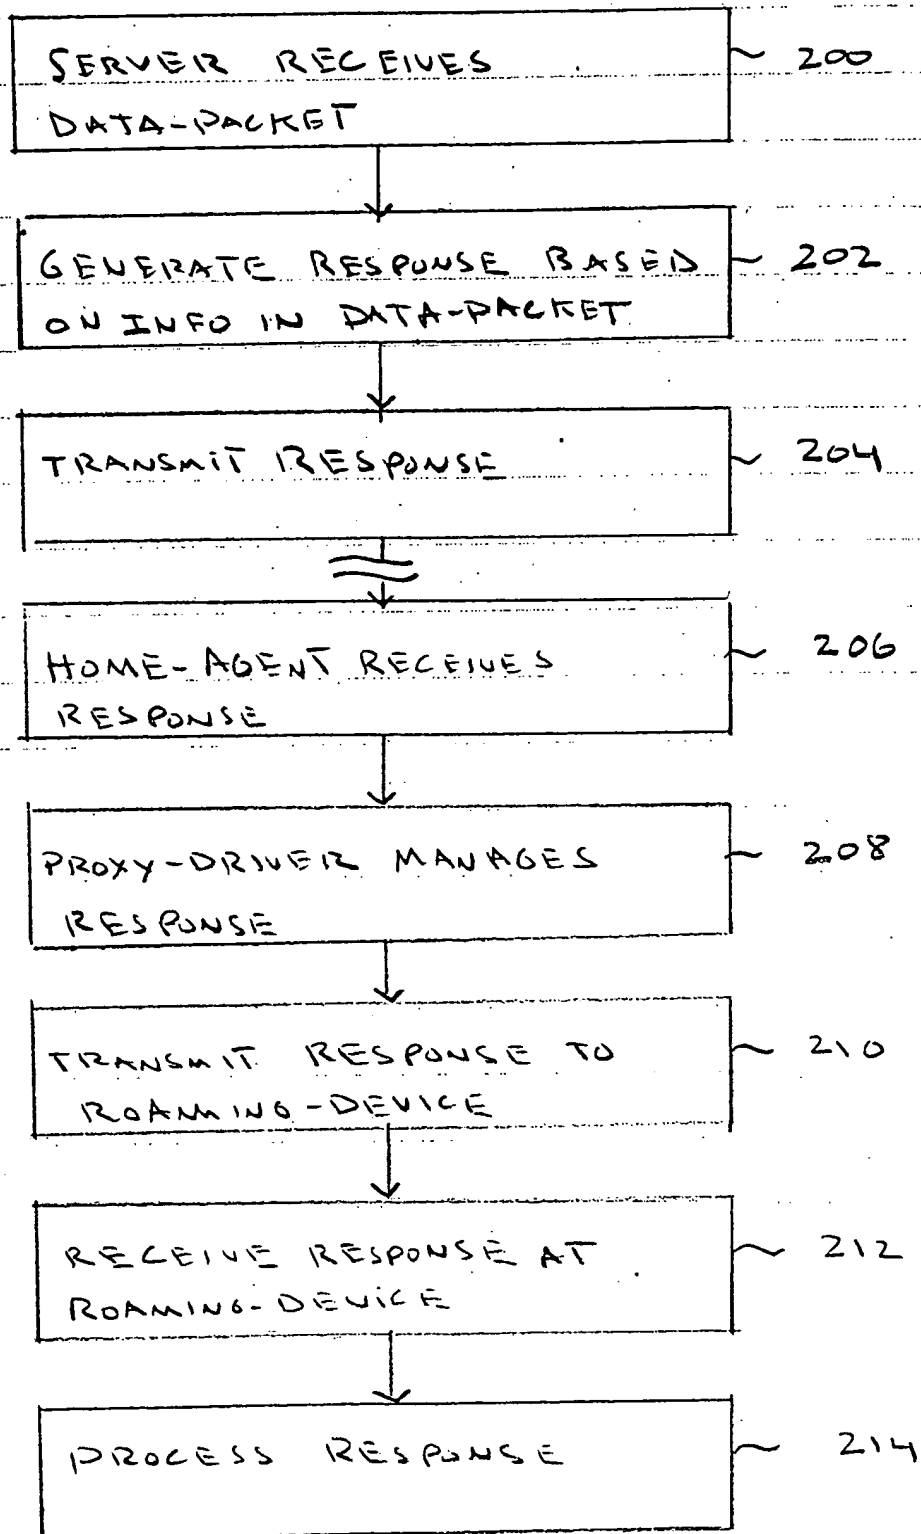 SERVER RECEIVES
DATA-PACKET
200
GENERATE RESPONSE BASED
ON INFO IN DATA-PACKET
202
TRANSMIT RESPONSE
204
HOME-AGENT RECEIVES
RESPONSE
206
PROXY-DRIVER MANAGES
RESPONSE
208
TRANSMIT RESPONSE TO
ROAMING-DEVICE
210
RECEIVE RESPONSE AT
ROAMING-DEVICE
212
PROCESS RESPONSE
214